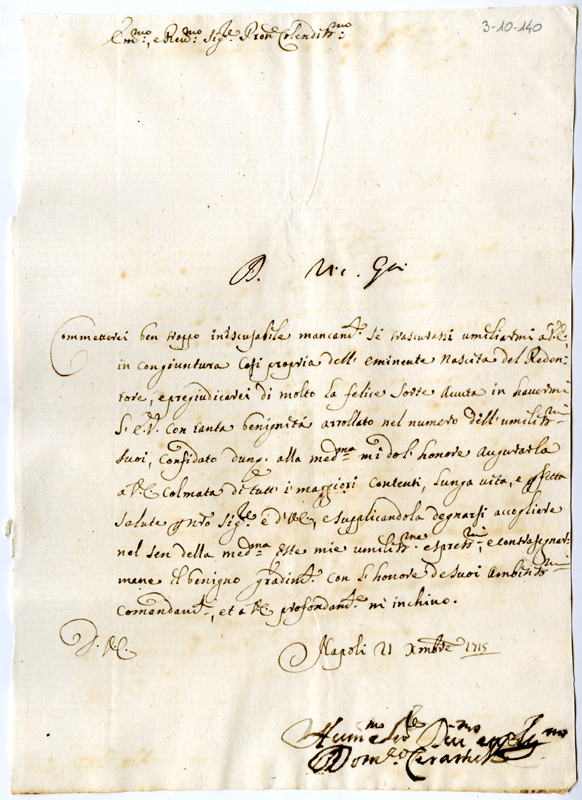 3-10-140
Em.mo, e Rev.mo Sig.re Pron Colendis.mo
Commetterei ben troppo inescusabile mancan.za se trascurassi umiliarmi a V.E.
in congiuntura così propria dell'eminente nascita del Reden-
tore, e pregiudicarei di molto la felice sorte avuta in havermi
l'E.V. con tanta benignità arrollato nel numero dell'umiliss.mi
suoi, confidato dunq. alla med.ma mi do l'honore augurarla
a V.E. colmata di tutt' i maggiori contenti, lunga vita, e perfetta
salute e d'V.E., e supplicandola degnarsi accogliere
nel sen della med.ma este mie umiliss.me espress.ni, e contrasegnar-
mene il benigno gradim.to con l'honore de suoi ambitiss.mi
comandam.ti, et a V.E. profondam.te m'inchino.
D. V.E.
Napoli 21 Xmbre 1715
Hum.mo
Dom.co